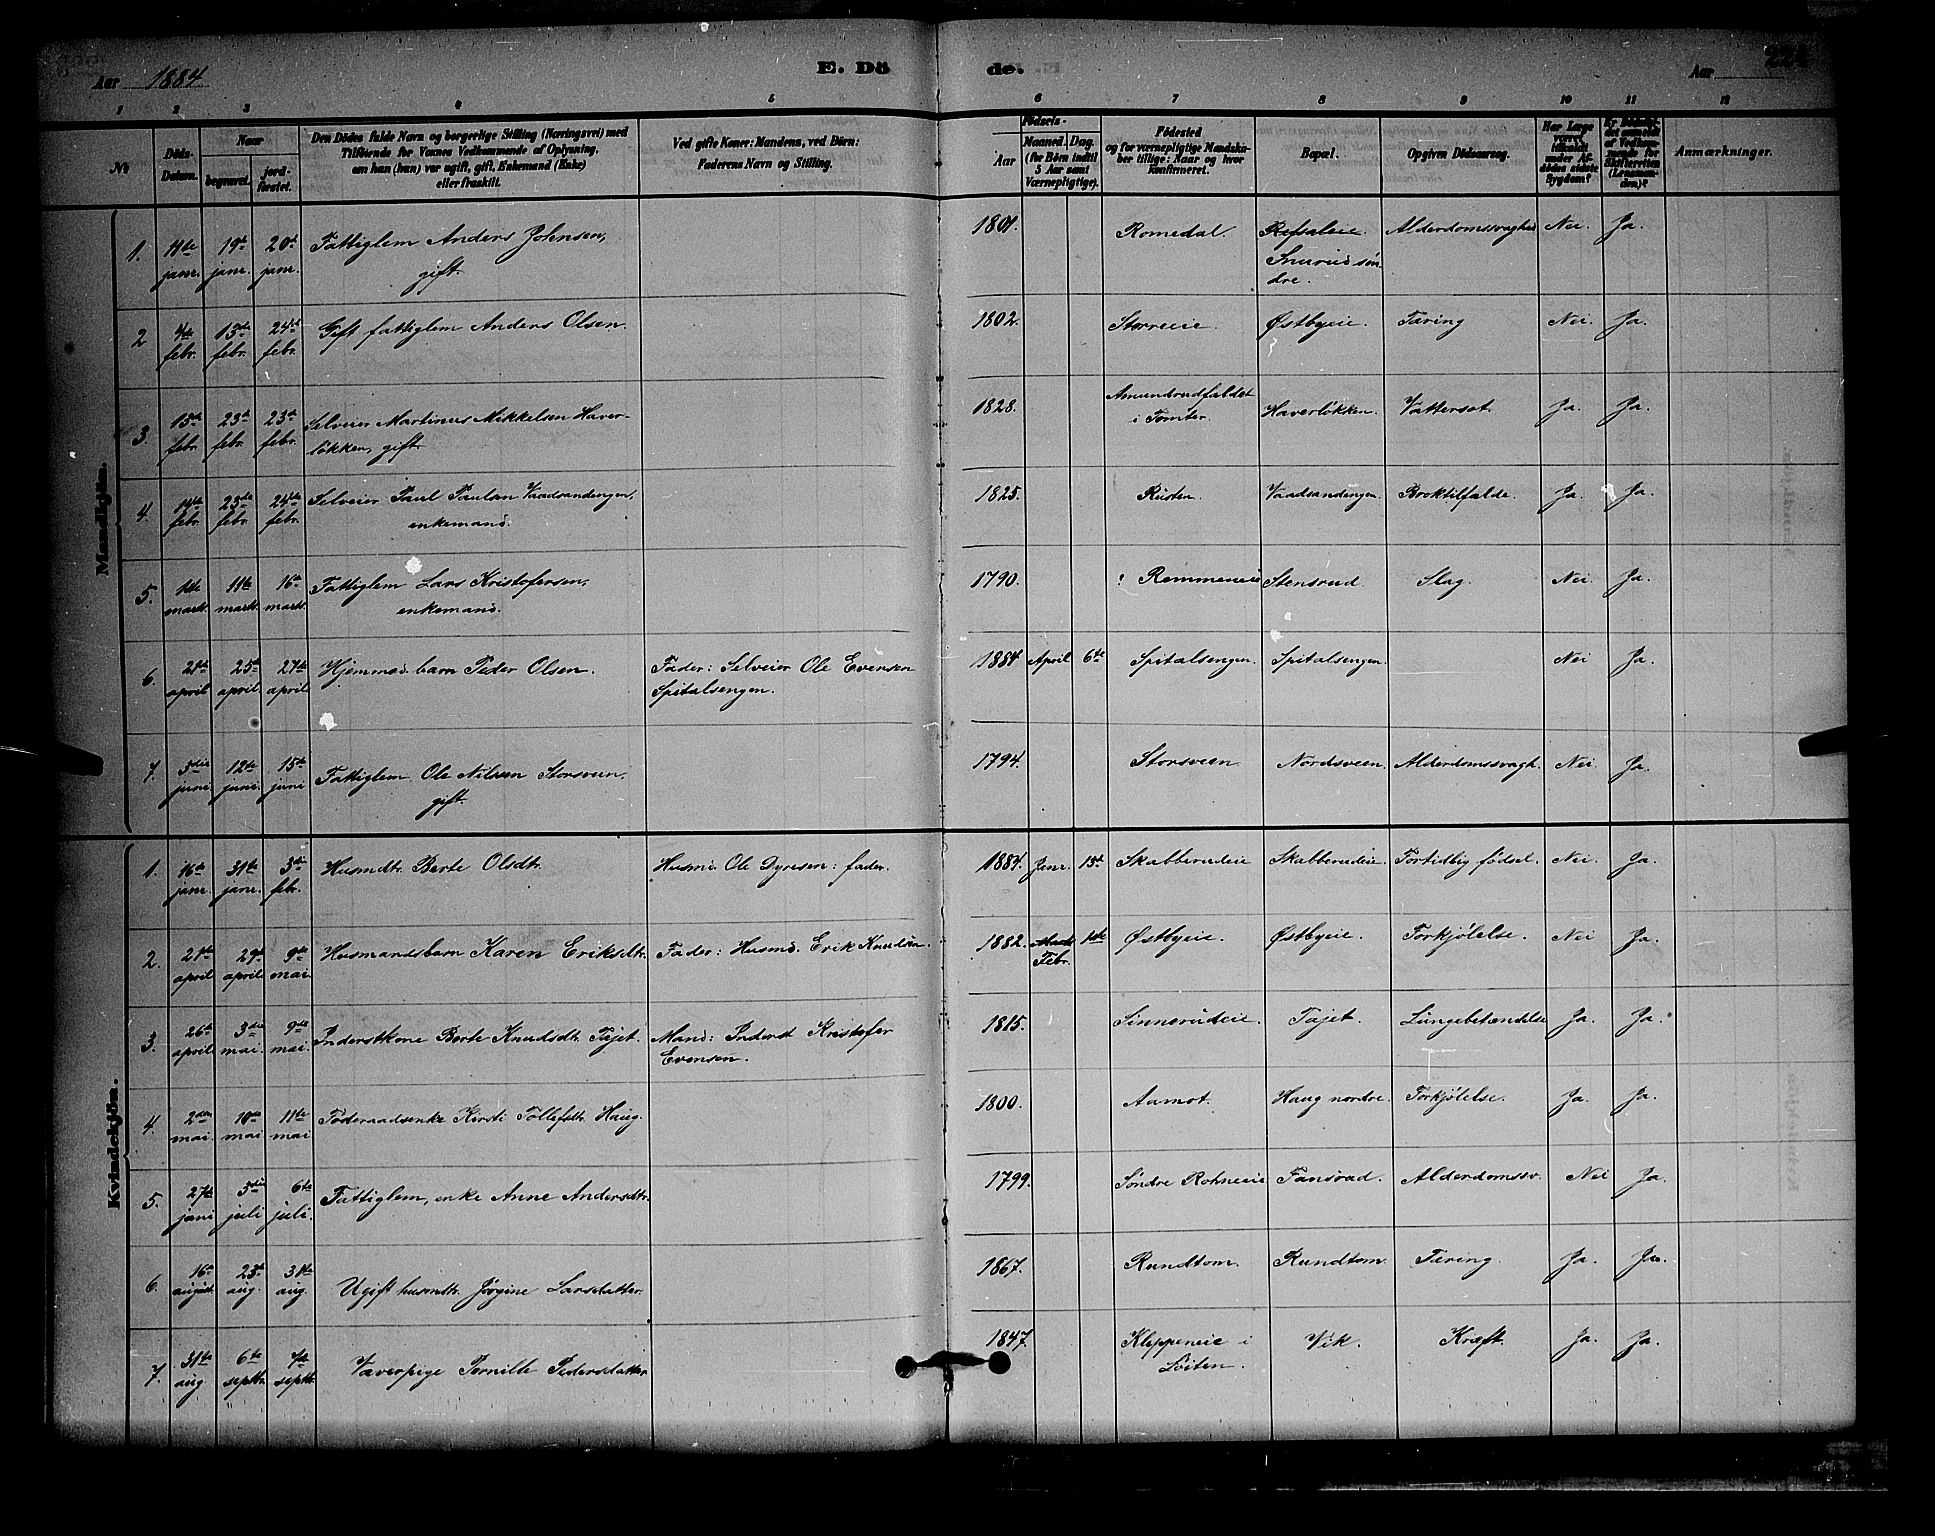 Aar 1884
E. Dö
de.
Aar
1 2 3 4 5 6 7 8 9 10 11 12
№
Döds-Datum.
Naar
begravet.
jord-fæstet.
Den Dödes fulde Navn og borgerlige Stilling (Næringsvei) med
Tilföiende for Voxnes Vedkommende af Oplysning,
om han (hun) var ugift, gift, Enkemand (Enke)
eller fraskilt.
Ved gifte Koner: Mandens, ved Börn:
Faderens Navn og Stilling.
Födsels-
Aar
Maaned. Dag.
(for Börn indtil
5 Aar samt
Værnepligtige).
Födested
og for værnepligtige Mandskaber tillige: Naar og hvor
konfirmeret.
Bopæl.
Opgiven Dödsaarsag.
Har Læge været tilkaldt under Afdödes sidste Sygdom?
Er Dödsfaldet anmeldt af Vedkommende for Skifteretten (Lensmanden)?
Anmærkninger.
Mandkjön.
1. 11te janr. 19de janr. 20de janr. Fattiglem Anders Johnsen, gift. 1801. Romedal. Refsaleie. Snurud søndre. Alderdomssvaghed Nei. Ja.
2 4de febr. 13de febr. 24de febr. Gift fattiglem Anders Olsen. 1802. Storreie. Østbyeie. Tæring Nei. Ja.
3. 15de febr. 23de febr. 23de febr. Selveier Martinus Mikkelsen Haverløkken, gift. 1828. Amundrudfaldet i Tomter. Haverløkken. Vattersot. Ja. Ja.
4. 14de febr. 23de febr. 24de febr. Selveier Paul Paulsen Vaadsandengen, enkemand. 1825. Rusten. Vaadsandengen. Broktilfælde. Ja. Ja.
5. 1ste marts 11te marts 16de marts Fattiglem Lars Kristofersen, enkemand. 1790. ! Remmeneie Stensrud Slag. Nei Ja.
6 21de april 25de april 27de april Hjemmed. barn Peder Olsen. Fader: Selveier Ole Evensen Spitalsengen. 1884 April 6te Spitalsengen. Spitalsengen. Nei Ja.
7. 3die juni 12te juni 15de juni Fattiglem Ole Nilsen Storsveen, gift. 1794. Storsveen Nordsveen. Alderdomssvagh. Nei Ja.
Kvindekjön.
1. 16de janr. 31te janr. 3die febr. Husmdtr. Berte Olsdtr. Husmd. Ole Dyresen: fader. 1884. Janr. 15de Skabberudeie Skabberudeie. Fortidlig fødsel. Nei. Ja.
2. 21de april 29de april 9de mai. Husmandsbarn Karen Eriksdtr. Fader: Husmd. Erik Knudsen. 1882. Febr. 1ste Østbyeie. Østbyeie. Forkjølelse. Nei Ja.
3. 26de april 3die mai. 9de mai. Inderstkone Berte Knudsdtr. Tajet. Mand: Inderst Kristofer Evensen. 1815. Sinnerudeie. Tajet. Lungebetændelse Ja. Ja.
4. 2den mai. 10de mai 11te mai Føderaadsenke Kirsti Tollefsdtr. Haug. 1800. Aamot. Haug nordre. Forkjølelse. Ja. Ja.
5. 27de juni 5die juli 6te juli. Fattiglem, enke Anne Andersdtr. 1799. Søndre Rohneeie Fansrad. Alderdomssv. Nei Ja.
6. 16de august. 23de aug. 31te aug. Ugift husmdtr. Jørgine Larsdatter. 1867. Rundtom. Rundtom. Tæring. Ja. Ja.
7. 31te aug 6te septbr. 7de septbr. Væverpige Pernille Pedersdatter 1847. Kleppeneie i Løiten. Vik. Kræft. Ja. Ja.